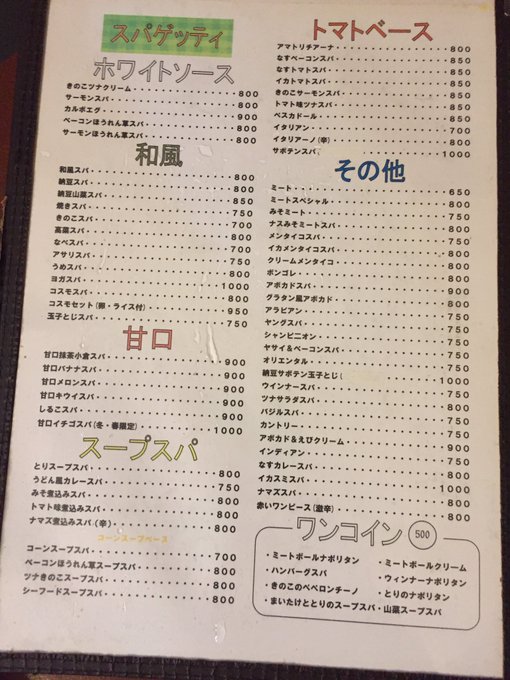 スパゲッティ
ホワイトソース
きのこツナクリーム・・・800
サーモンスパ・・・800
カルボエグ・・・900
ベーコンほうれん草スパ・・・800
サーモンほうれん草スパ・・・800
和風
和風スパ・・・800
納豆スパ・・・800
納豆山菜スパ・・・850
焼きスパ・・・750
きのこスパ・・・700
高菜スパ・・・800
なべスパ・・・700
アサリスパ・・・750
うめスパ・・・800
ヨガスパ・・・1000
コスモスパ・・・800
コスモセット(卵・ライス付)・・・950
玉子とじスパ・・・750
甘口
甘口抹茶小倉スパ・・・900
甘口バナナスパ・・・900
甘口メロンスパ・・・900
甘口キウイスパ・・・900
しるこスパ・・・900
甘口イチゴスパ(冬・春限定)・・・1000
スープスパ
とりスープスパ・・・800
うどん風カレースパ・・・750
みそ煮込みスパ・・・800
トマト味煮込みスパ・・・800
ナマズ煮込みスパ(辛)・・・800
コーンスープベース
コーンスープスパ・・・700
ベーコンほうれん草スープスパ・・・800
ツナきのこスープスパ・・・800
シーフードスープスパ・・・800
トマトベース
アマトリチアーナ・・・800
なすベーコンスパ・・・850
なすトマトスパ・・・850
イカトマトスパ・・・850
きのこサーモンスパ・・・800
トマト味ツナスパ・・・800
ペスカドール・・・850
イタリアン・・・700
イタリアーノ(辛)・・・800
サボテンスパ・・・1000
その他
ミート・・・650
ミートスペシャル・・・800
みそミート・・・750
ナスみそミートスパ・・・850
メンタイコスパ・・・750
イカメンタイコスパ・・・800
クリームメンタイコ・・・800
ボンゴレ・・・800
アボカドスパ・・・900
グラタン風アボカド・・・900
アラビアン・・・750
ヤングスパ・・・750
シャンピニオン・・・750
ヤサイ&ベーコンスパ・・・800
オリエンタル・・・750
納豆サボテン玉子とじ・・・1000
ウインナースパ・・・750
ツナサラダスパ・・・800
バジルスパ・・・750
カントリー・・・750
アボカド&えびクリーム・・・900
インディアン・・・750
なすカレースパ・・・850
イカスミスパ・・・1000
ナマズスパ・・・1000
赤いワンピース(激辛)・・・800
ワンコイン 500
・ミートボールナポリタン ・ミートボールクリーム
・ハンバーグスパ ・ウィンナーナポリタン
・きのこのペペロンチーノ ・とりのナポリタン
・まいたけととりのスープスパ ・山菜スープスパ